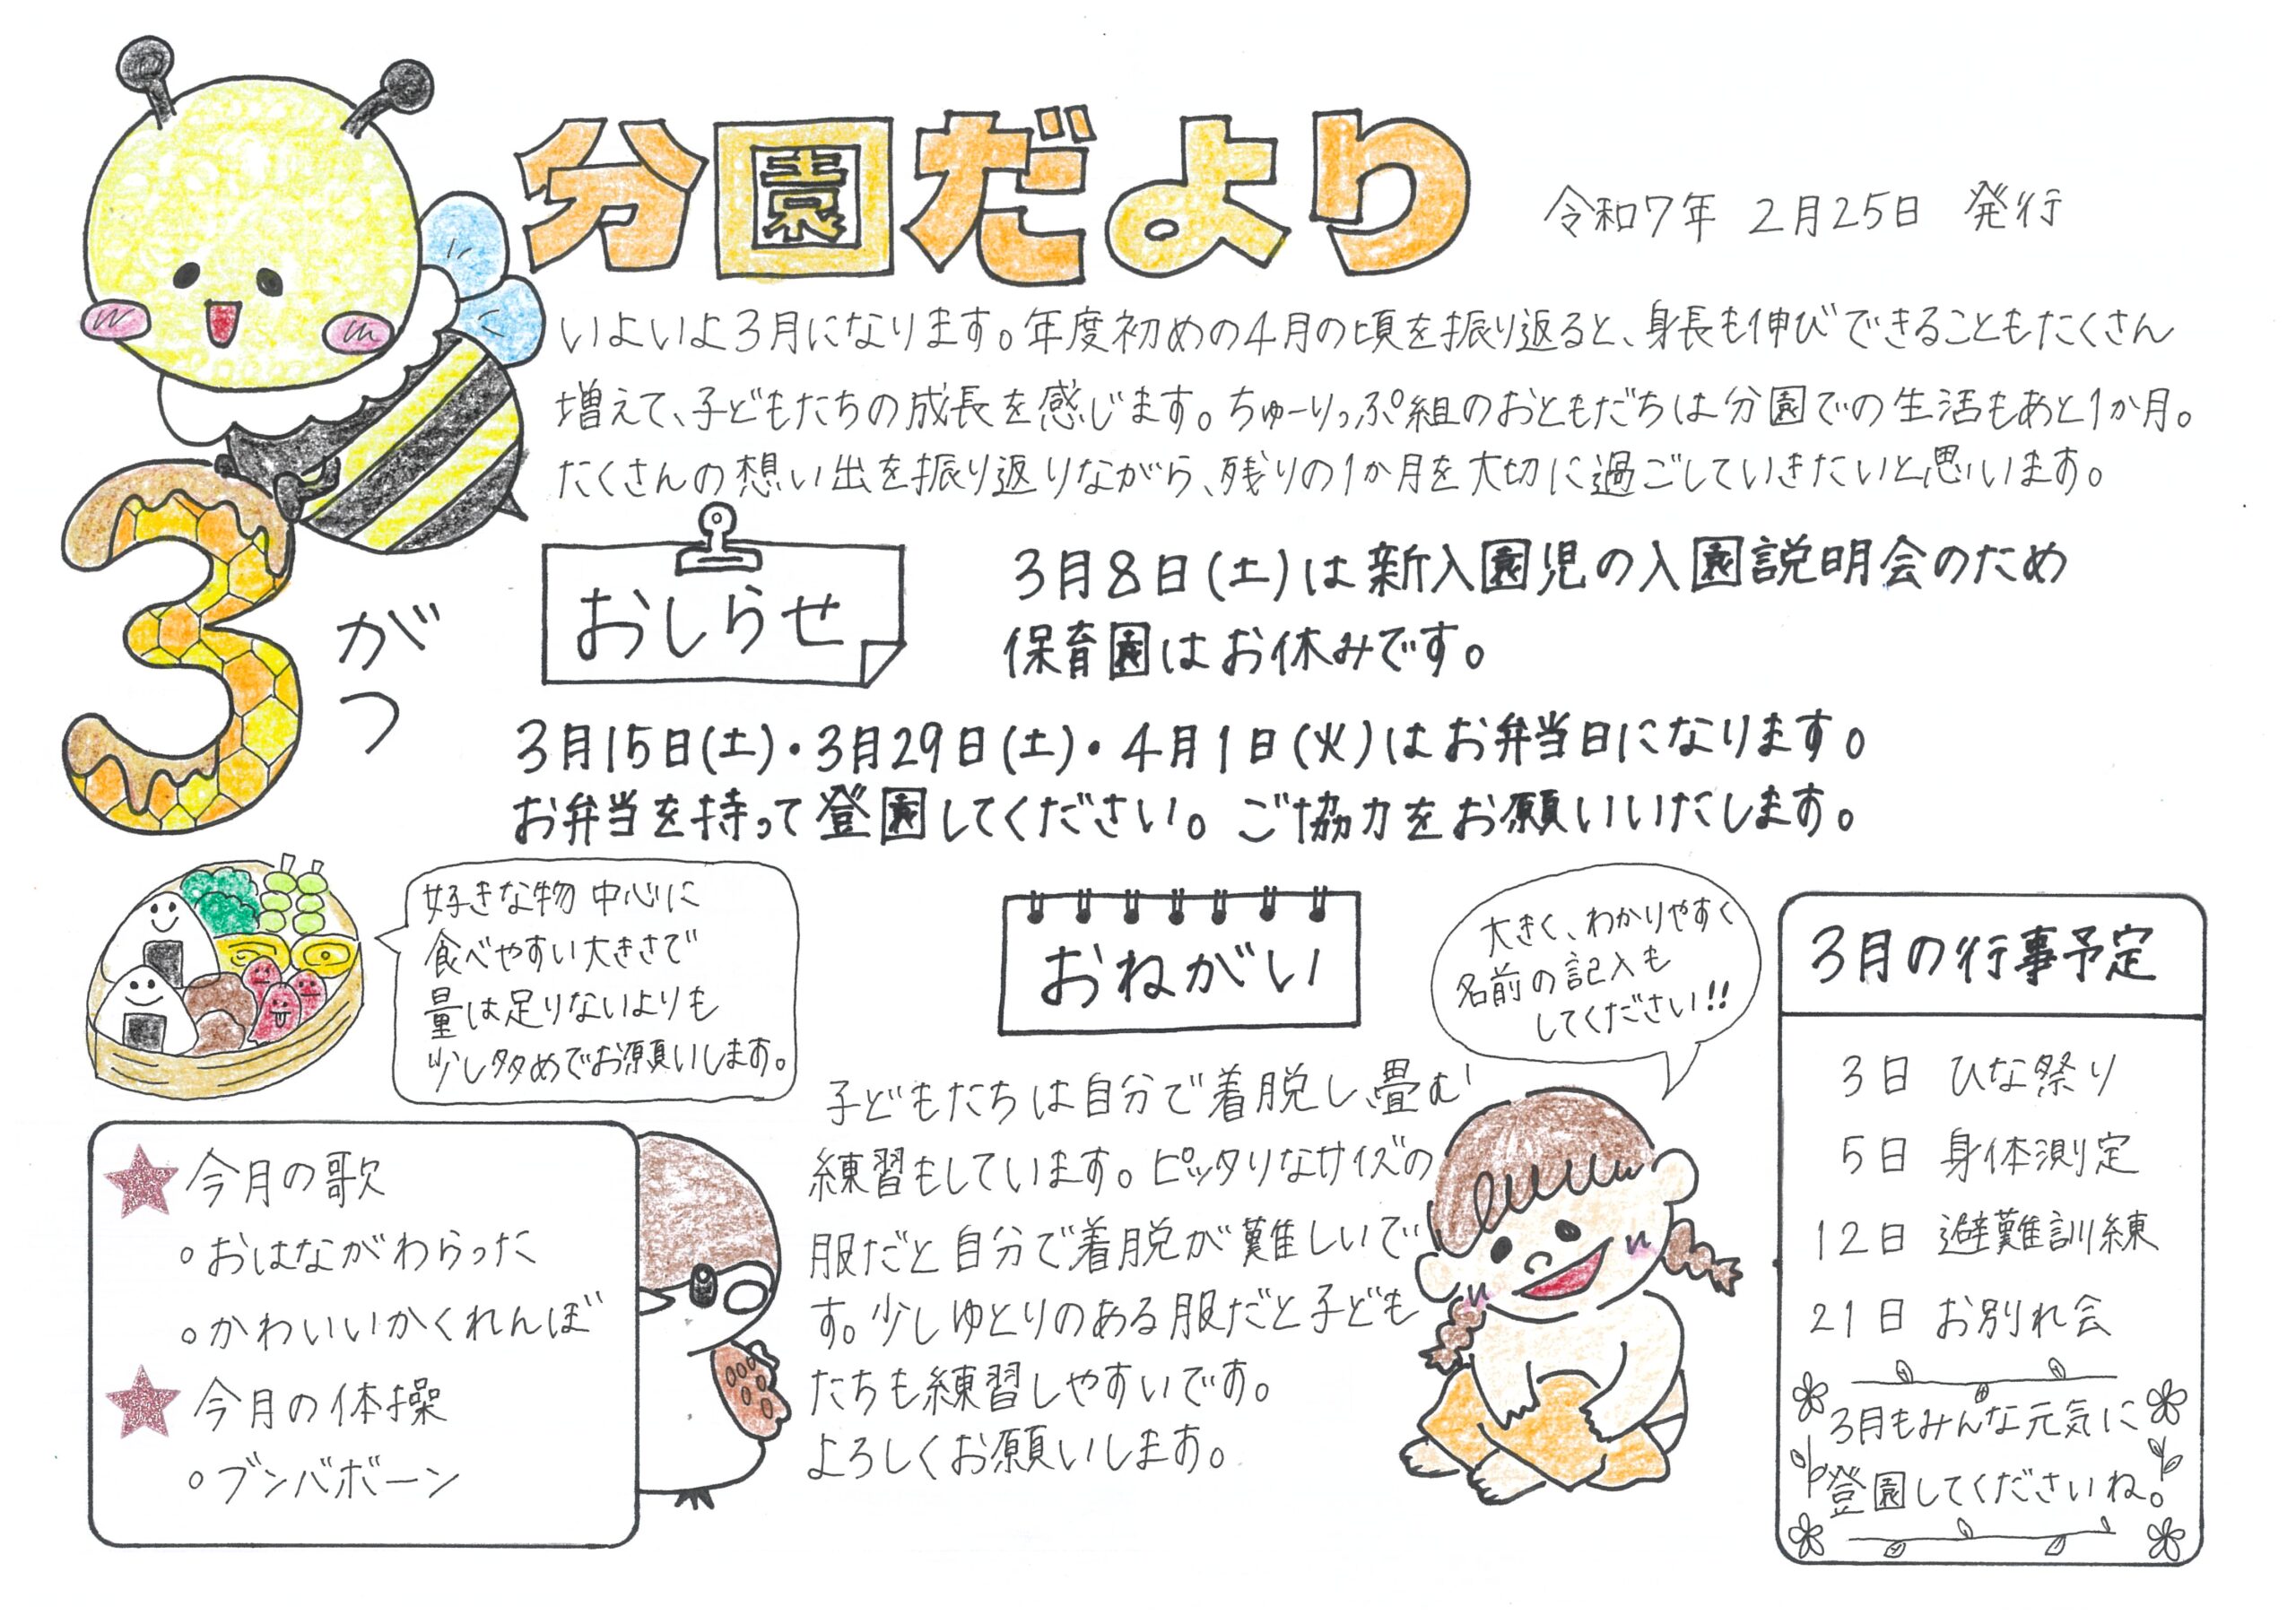 分園だより
令和7年 2月25日 発行
3
がつ
いよいよ3月になります。年度初めの4月の頃を振り返ると、身長も伸びできることもたくさん
増えて、子どもたちの成長を感じます。ちゅーりっぷ組のおともだちは分園での生活もあと1か月。
たくさんの想い出を振り返りながら、残りの1か月を大切に過ごしていきたいと思います。
おしらせ
3月8日(土)は新入園児の入園説明会のため
保育園はお休みです。
3月15日(土)・3月29日(土)・4月1日(火)はお弁当日になります。
お弁当を持って登園してください。ご協力をお願いいたします。
好きな物中心に
食べやすい大きさで
量は足りないよりも
少し多めでお願いします。
おねがい
大きく、わかりやすく
名前の記入も
してください!!
子どもたちは自分で着脱し、畳む
練習もしています。ピッタリなサイズの
服だと自分で着脱が難しいで
す。少しゆとりのある服だと子ども
たちも練習しやすいです。
よろしくお願いします。
今月の歌
。おはながわらった
。かわいいかくれんぼ
今月の体操
。ブンバボーン
3月の行事予定
3日 ひな祭り
5日 身体測定
12日 避難訓練
21日 お別れ会
3月もみんな元気に
登園してくださいね。